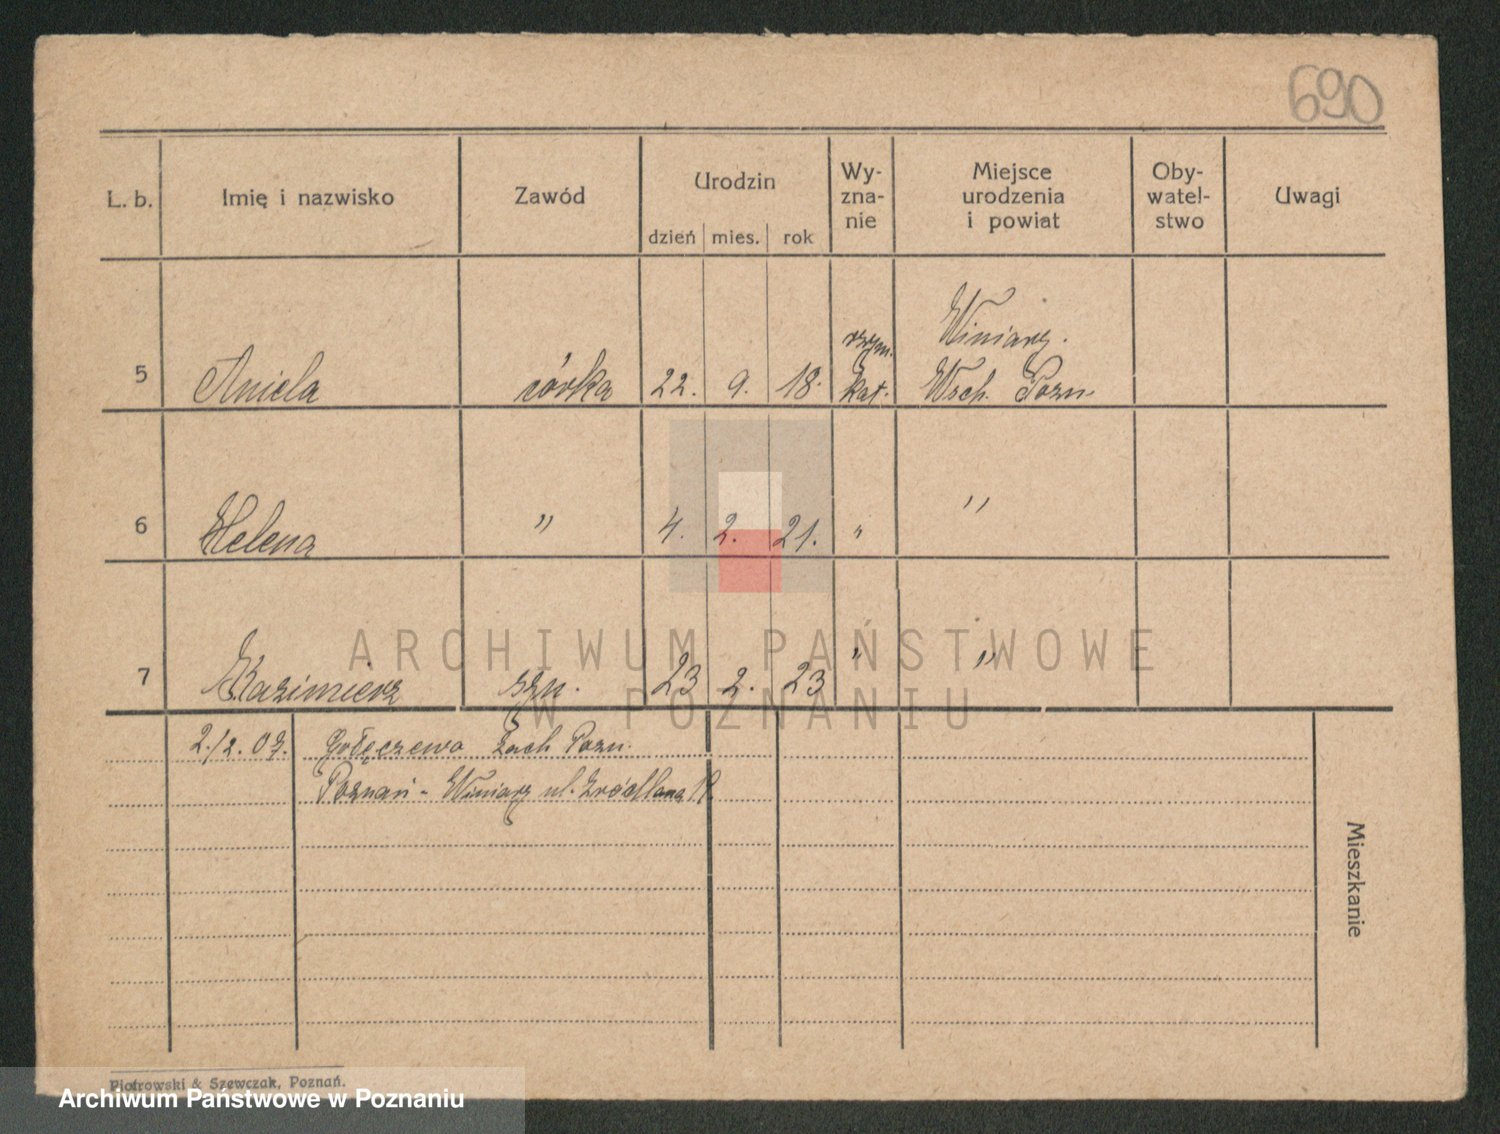 690
L. b.
Imię i nazwisko
Zawód
Urodzin
dzień mies. rok
Wy-
zna-
nie
Miejsce
urodzenia
i powiat
Oby-
watel-
stwo
Uwagi
5 Aniela córka 22. 9. 18. rzym. kat. Winiary. Wsch. Pozn.
6 Helena " 4. 2. 21. " "
7 Kazimierz syn. 23 2. 23 " "
ARCHIWUM PAŃSTWOWE
W POZNANIU
Gołęczewo Zach Pozn.
Poznań - Winiary ul. Źródlana
Mieszkanie
Piotrowski & Szewczak, Poznań.
Archiwum Państwowe w Poznaniu